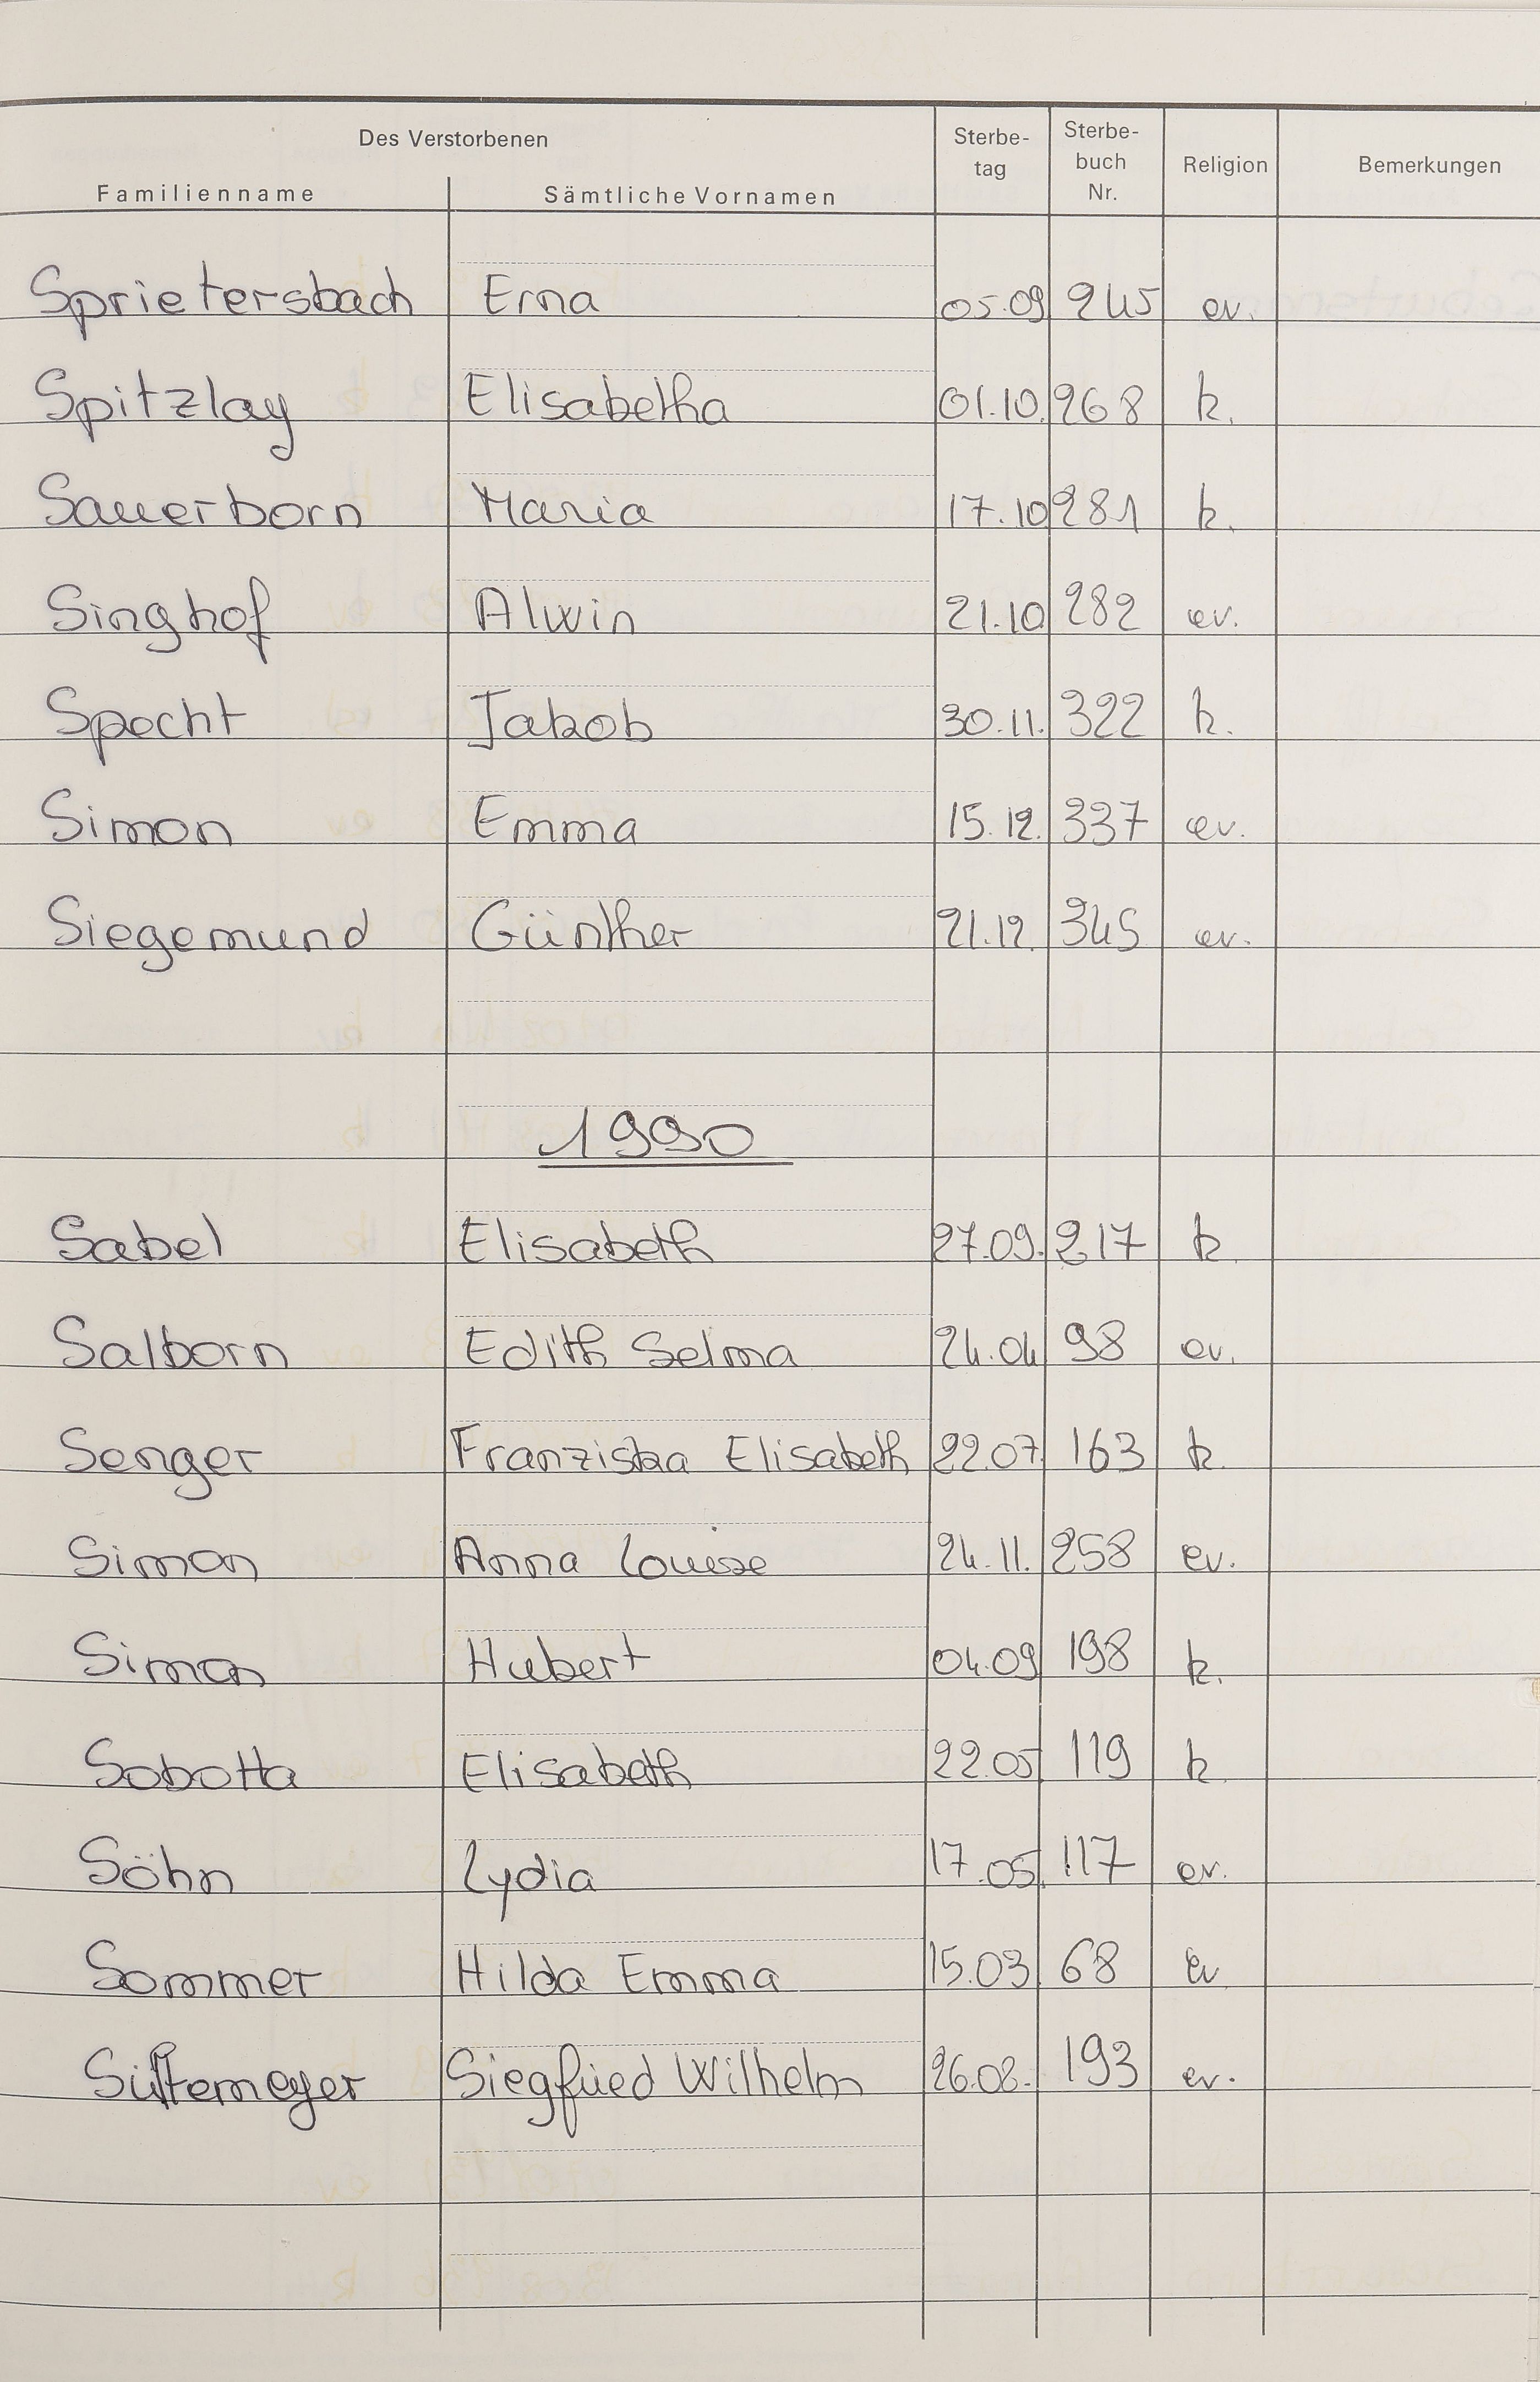 Des Verstorbenen
Familienname Sämtliche Vornamen Sterbe-tag Sterbe-buch Nr. Religion Bemerkungen
Sprietersbach Erna 05.09 245 ev.
Spitzlay Elisabetha 01.10. 268 k.
Sauerborn Maria 17.10 281 k.
Singhof Alwin 21.10 282 ev.
Specht Jakob 30.11. 322 k.
Simon Emma 15.12. 337 ev.
Siegemund Günther 21.12. 345 ev.
1990
Sabel Elisabeth 27.09. 217 k
Salborn Edith Selma 24.04 98 ev.
Senger Franziska Elisabeth 22.07 163 k
Simon Anna Louise 24.11. 258 ev.
Simon Hubert 04.09 198 k.
Sobotta Elisabeth 22.05 119 k
Söhn Lydia 17.05. 117 ev.
Sommer Hilda Emma 15.03 68 ev
Siegfried Wilhelm 26.08. 193 ev.